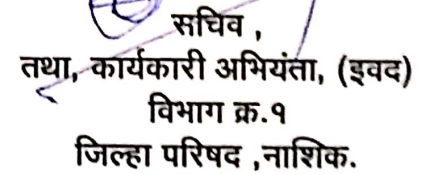 सचिव ,
तथा, कार्यकारी अभियंता, (इवद)
विभाग क्र.१
जिल्हा परिषद ,नाशिक.